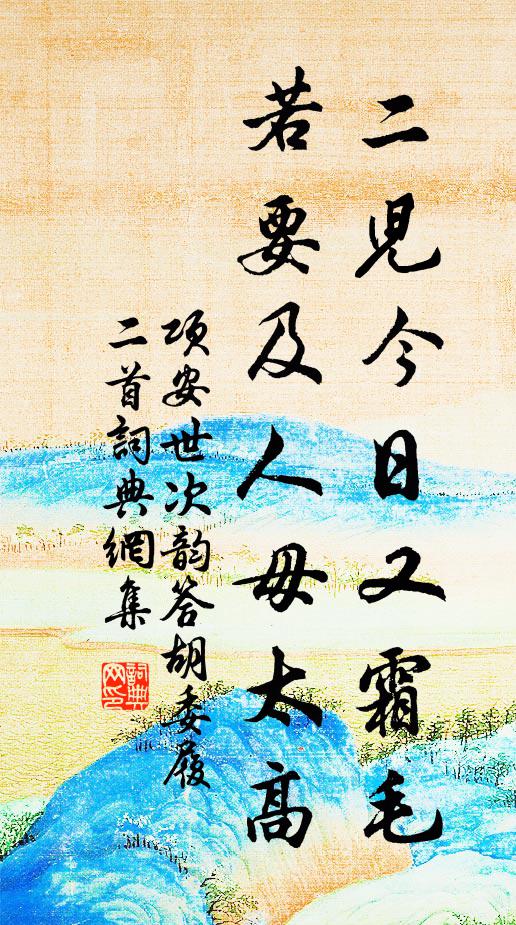 二児今日又霜毛
若要及人毋太高
項安世次韵答胡委履
二首詞典網集
詞典
网印